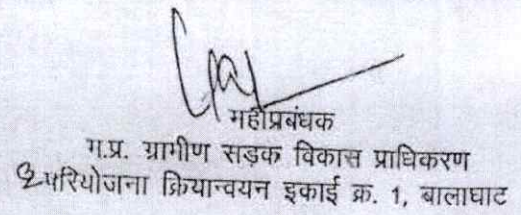 महाप्रबंधक
म.प्र. ग्रामीण सड़क विकास प्राधिकरण
परियोजना क्रियान्वयन इकाई क्र. 1, बालाघाट